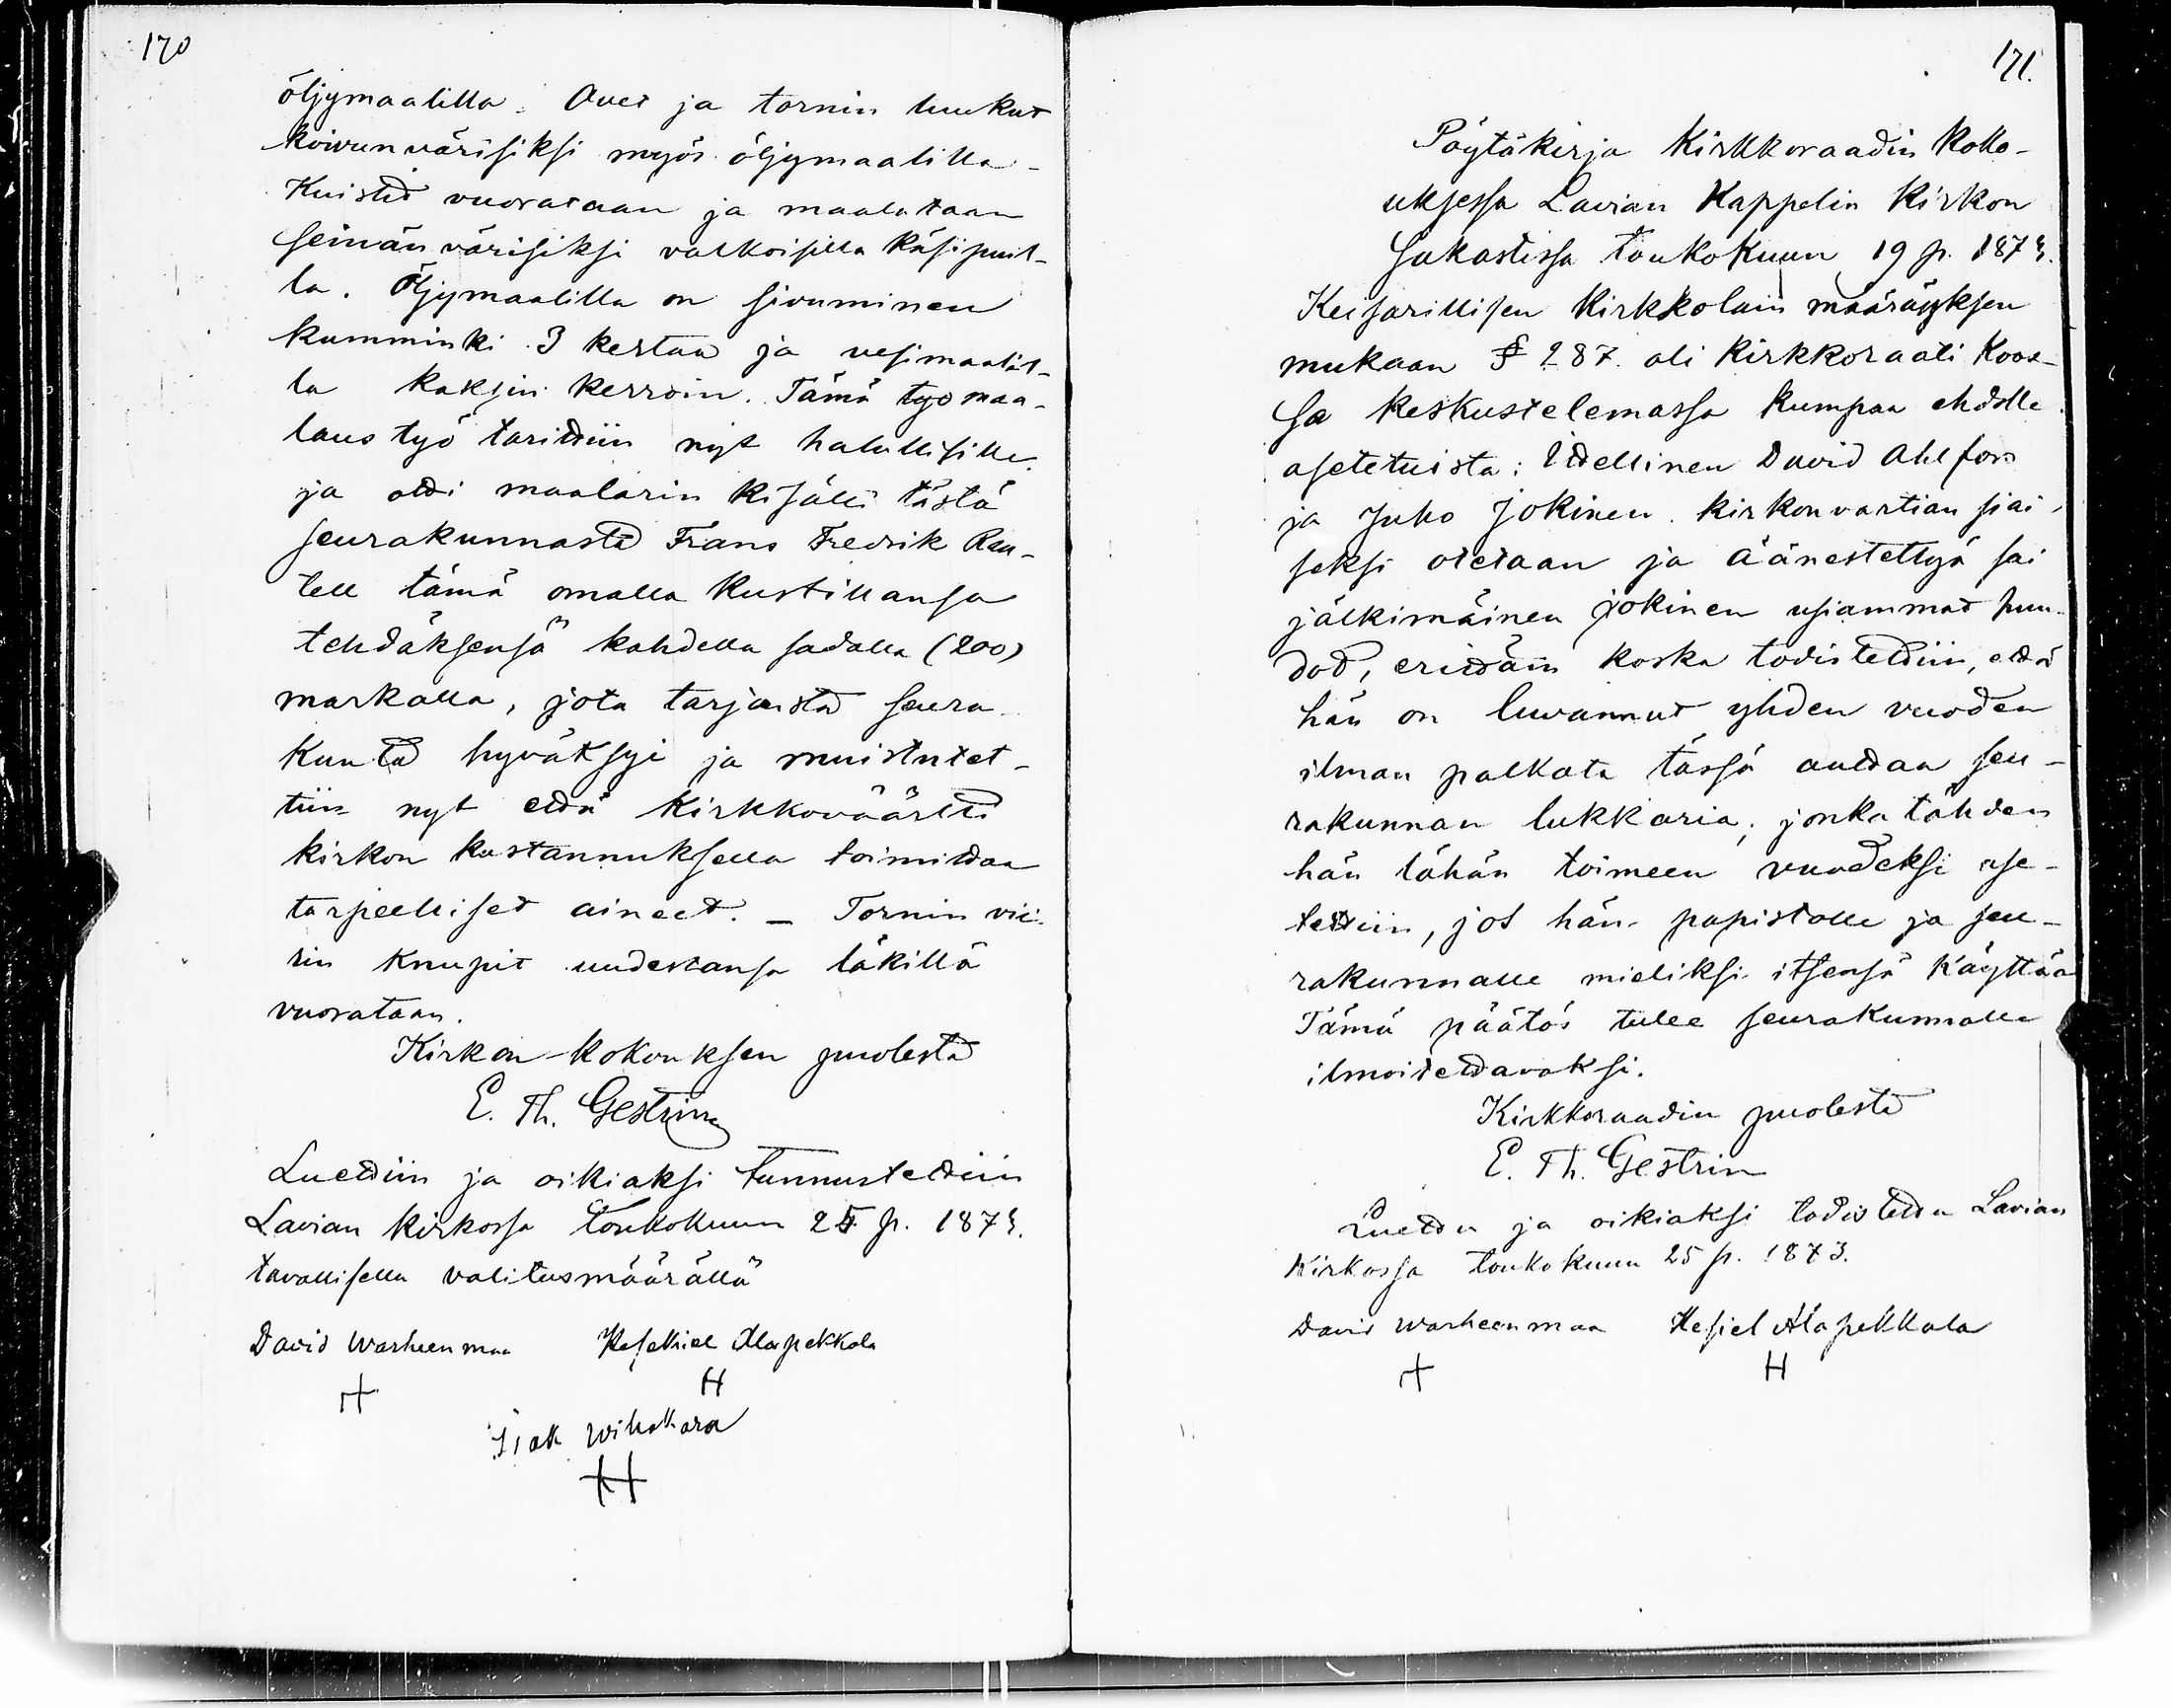 170
öljymaalilla. Ovet ja tornin luukut
koivunvärisiksi myös öljymaalilla -
Kuistit vuorataan ja maalataan
seinän värisiksi valkoisilla käsipuil-
la. Öljymaalilla on sivuminen
kumminki 3 kertaa ja vesimaalil-
la kaksin kerroin. Tämä työ maa-
laus työ tarittiin nyt halullisille,
ja otti maalarin kisälli tästä
seurakunnasta Frans Fredrik Ran-
tell tämä omalla kustillansa
tehdäksensä kahdella sadalla (200)
markalla, jota tarjousta seura-
kunta hyväksyi ja muistutet-
tiin nyt että Kirkkoväärtti
kirkon kustannuksella toimittaa
tarpeelliset aineet. — Tornin vii-
rin knupit uudestansa läkillä
vuorataan.
Kirkon-kokouksen puolesta
E. Th. Gestrin
Luettiin ja oikiaksi tunnustettiin
Lavian kirkossa toukokuun 25 p. 1873.
tavallisella valitusmäärällä
David Warheenmaa Hesekiel Alapekkola
H
Isak Wihakara
171.
Pöytäkirja Kirkkoraadin Koko-
uksessa Lavian Kappelin Kirkon
Sakastissa toukokuun 19 p. 1873.
Keisarillisen Kirkkolain määräyksen
mukaan § 287. oli Kirkkoraati Koos-
sa keskustelemassa kumpaa ehdolle
asetetuista: Itellinen David Ahlfors
ja Juho Jokinen kirkonvartian siai-
seksi otetaan ja äänestettyä sai
jälkimäinen Jokinen usiammat puu-
dot, erittäin koska todistettiin, että
hän on luvannut yhden vuoden
ilman palkata tässä auttaa seu-
rakunnan lukkaria, jonka tähden
hän tähän toimeen vuodeksi ase-
tettiin, jos hän papistolle ja seu-
rakunnalle mieliksi itsensä käyttää
Tämä päätös tulee seurakunnalle
ilmoitettavaksi.
Kirkkoraadin puolesta
E. Th. Gestrin
Luettu ja oikiaksi todistettu Lavian
Kirkossa toukokuun 25 p. 1873.
David Warheenmaa Hesiel Alapekkala
H